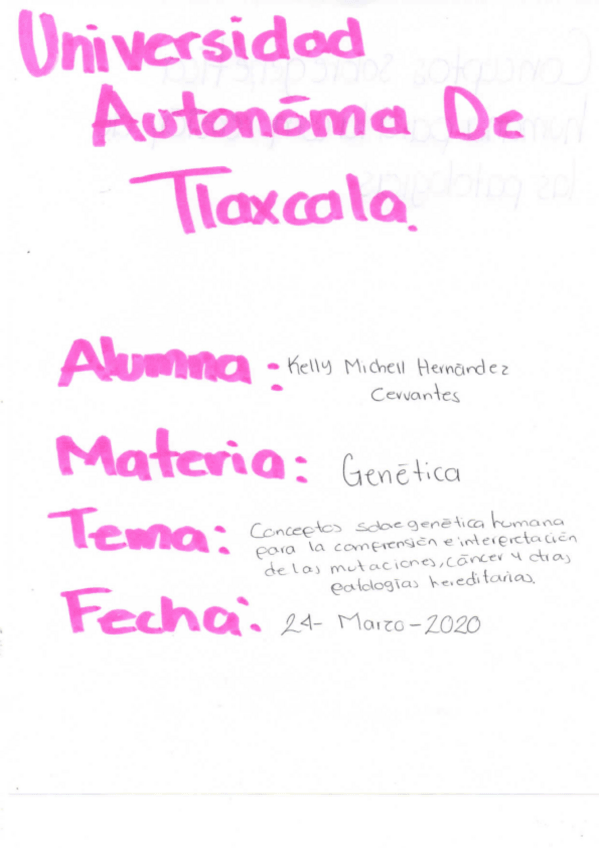 Universidad
Autonóma De
Tlaxcala.
Alumna: Kelly Michell Hernández
Cervantes
Materia: Genética
Tema: Conceptos sobre genética humana
para la comprensión e interpretación
de las mutaciones, cáncer y otras
patologías hereditarias.
Fecha: 24- Marzo-2020